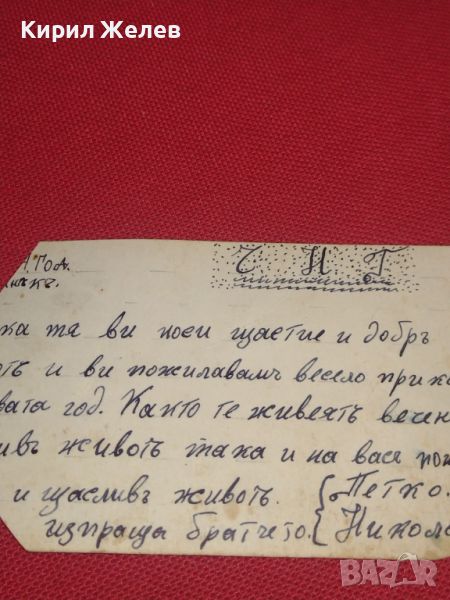 Кирил Желев
Ч Н Г
год.
ка та ви носи щастие и добръ
отъ и ви пожилавамъ весело прик
вата год. Както те живеятъ вечен
ивъ животъ така и на васъ пож
и щасливъ животъ. Петко.
изпраща братчето. Никола
BAZAR